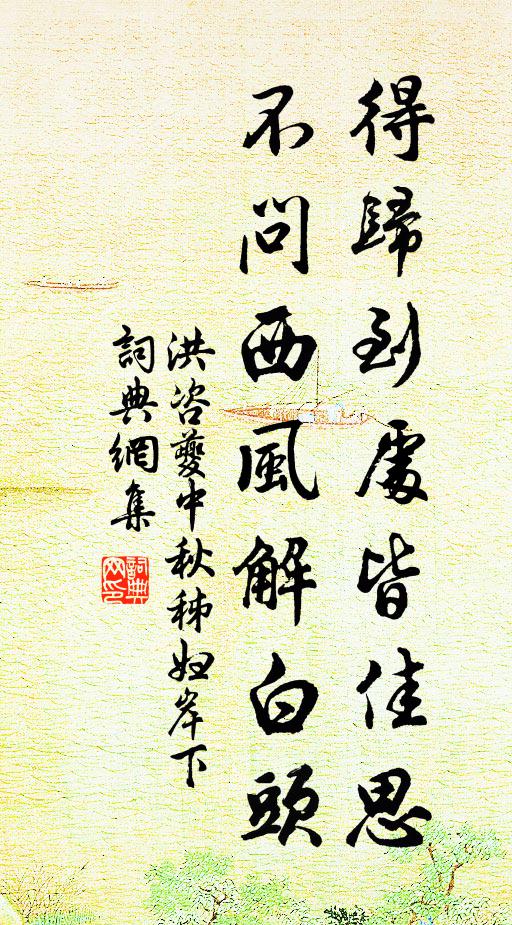 得歸到處皆佳思
不問西風解白頭
洪咨夔中秋秭歸岸下
詞典網集
詞典网印